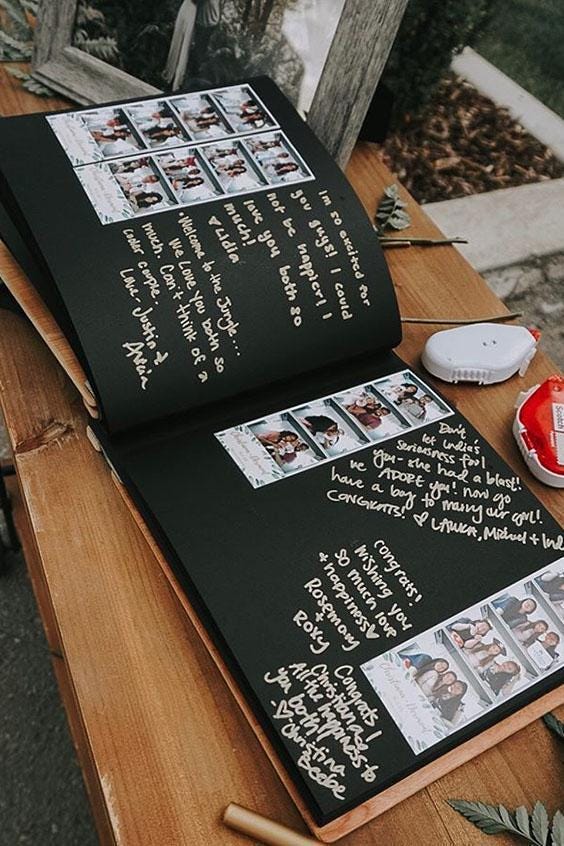 I'm so excited for
you guys! I could
not be happier! I
love you both so
much!
♥ Lidia
Welcome to the Jungle...
We Love you both so
much. Can't think of a
cooler couple.
Love Justin &
Don't
let India's
Seriousness fool
you - she had a blast!
we ADORE you! now go
have a boy to marry our girl!
CONGRATS! ♡ LAURA, Michael + Ind
congrats!
Wishing you
so much love
+ happiness ♥
Rosemary
+
Roxy
Congrats
Christina
All the happiness to
you both!
♡ Christina
Beebe
Christina
Scotch